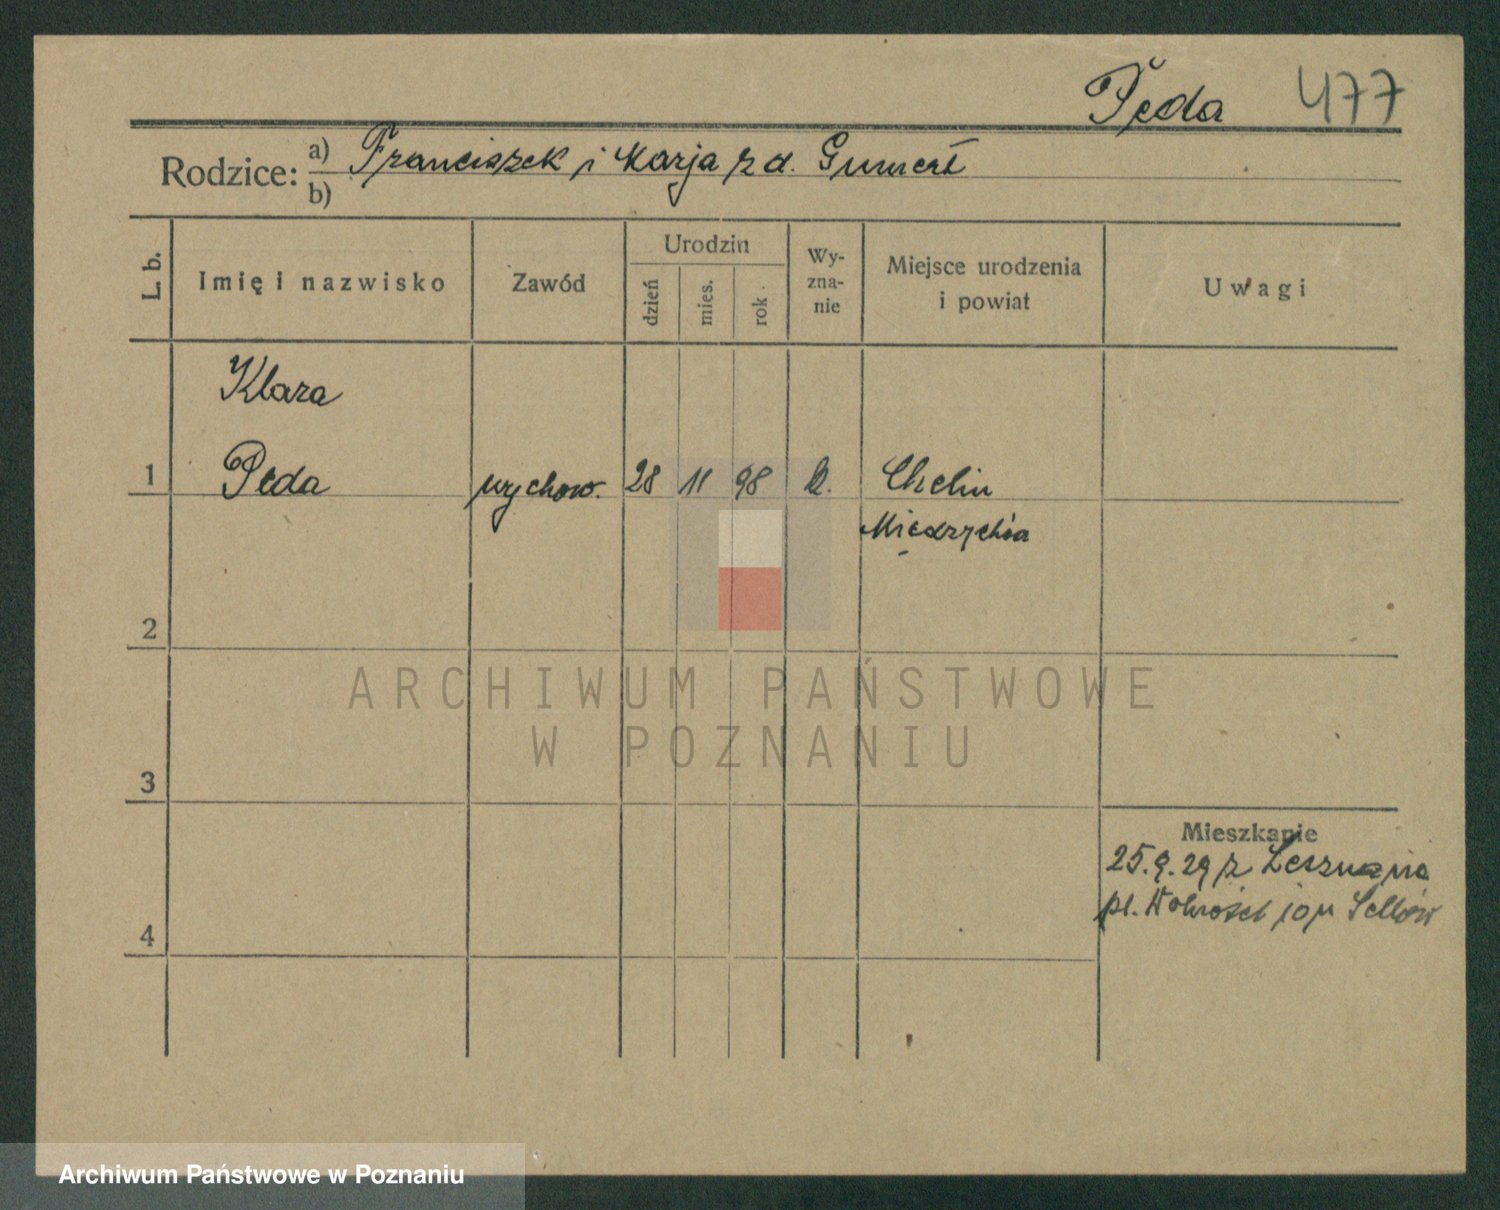 Pęda 477
Rodzice: a) Franciszek i Marja z d. Gumert
b)
L. b. Imię i nazwisko Zawód Urodzin dzień mies. rok Wy-zna-nie Miejsce urodzenia i powiat Uwagi
Klara
1 Pęda wychow. 28 11 98 k. Chelin
Międzychód
2
ARCHIWUM PAŃSTWOWE
W POZNANIU
3
Mieszkanie
25.9.29 z Leszna na
pl. Wolności 10 u
4
Archiwum Państwowe w Poznaniu